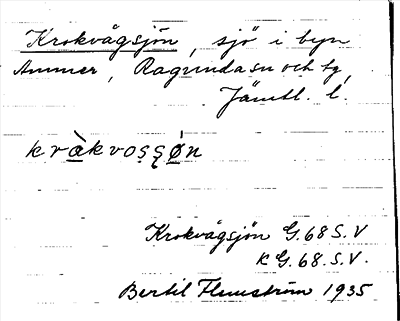 Krokvågsjön, sjö i byn
Ammer, Ragunda sn och tg,
Jämtl. l.
kràkvosşø̀n
Krokvågsjön G.68 S.V
K G.68. S.V.
Bertil Flemström 1935